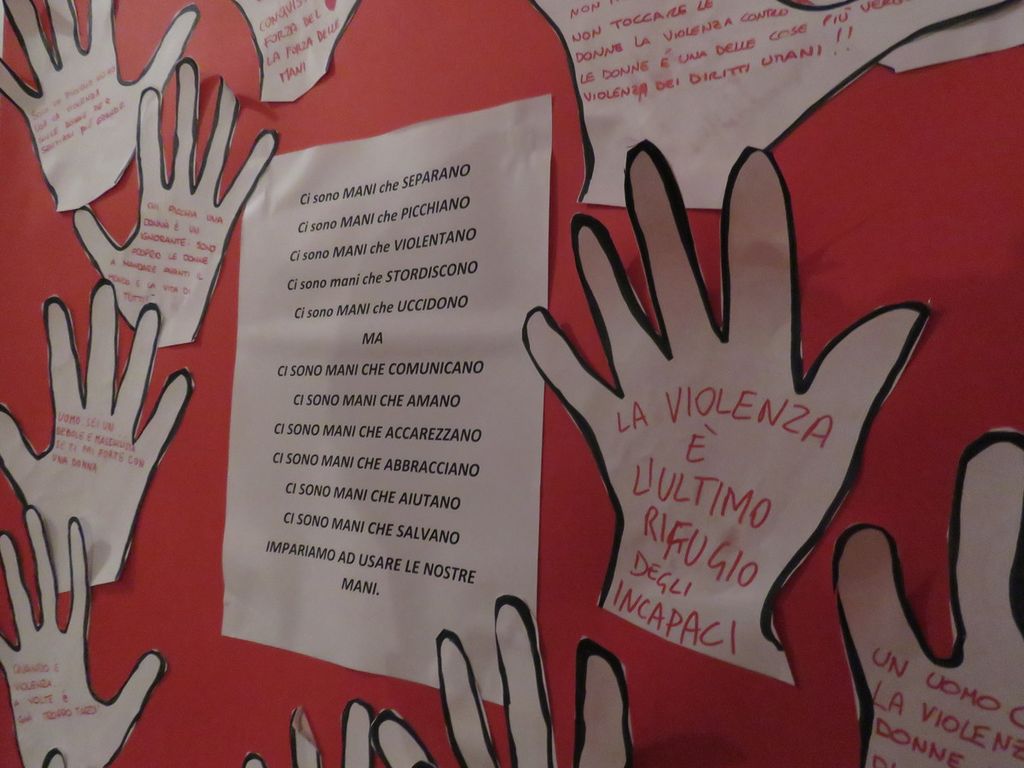 CONQUIS
FORZA DEL
LA FORZA DELLE
MANI
NON TOCCARE LE
DONNE LA VIOLENZA CONTRO
LE DONNE È UNA DELLE COSE PIÙ VERGO
VIOLENZA DEI DIRITTI UMANI !!
CHI PICCHIA UNA
DONNA È UN
IGNORANTE: SONO
PROPRIO LE DONNE
A MANDARE AVANTI IL
MONDO E LA VITA DI
TUTTI!
Ci sono MANI che SEPARANO
Ci sono MANI che PICCHIANO
Ci sono MANI che VIOLENTANO
Ci sono mani che STORDISCONO
Ci sono MANI che UCCIDONO
MA
CI SONO MANI CHE COMUNICANO
CI SONO MANI CHE AMANO
CI SONO MANI CHE ACCAREZZANO
CI SONO MANI CHE ABBRACCIANO
CI SONO MANI CHE AIUTANO
CI SONO MANI CHE SALVANO
IMPARIAMO AD USARE LE NOSTRE
MANI.
LA VIOLENZA
È
L'ULTIMO
RIFUGIO
DEGLI
INCAPACI
UOMO SEI UN
DEBOLE E
SE TI FAI FORTE CON
UNA DONNA
QUANDO È
VIOLENZA
A VOLTE È
GIÀ TROPPO TARDI
UN UOMO C
LA VIOLENZ
DONNE